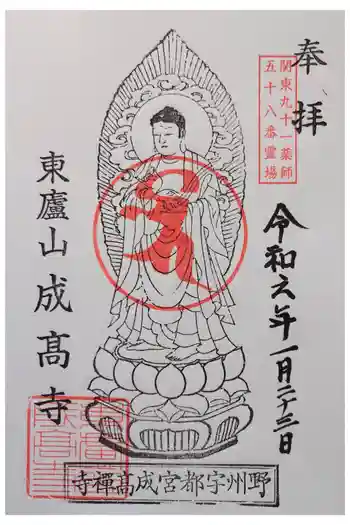 奉拝
関東九十一薬師
五十八番霊場
令和六年一月二十三日
東廬山成髙寺
野州宇都宮成髙禅寺